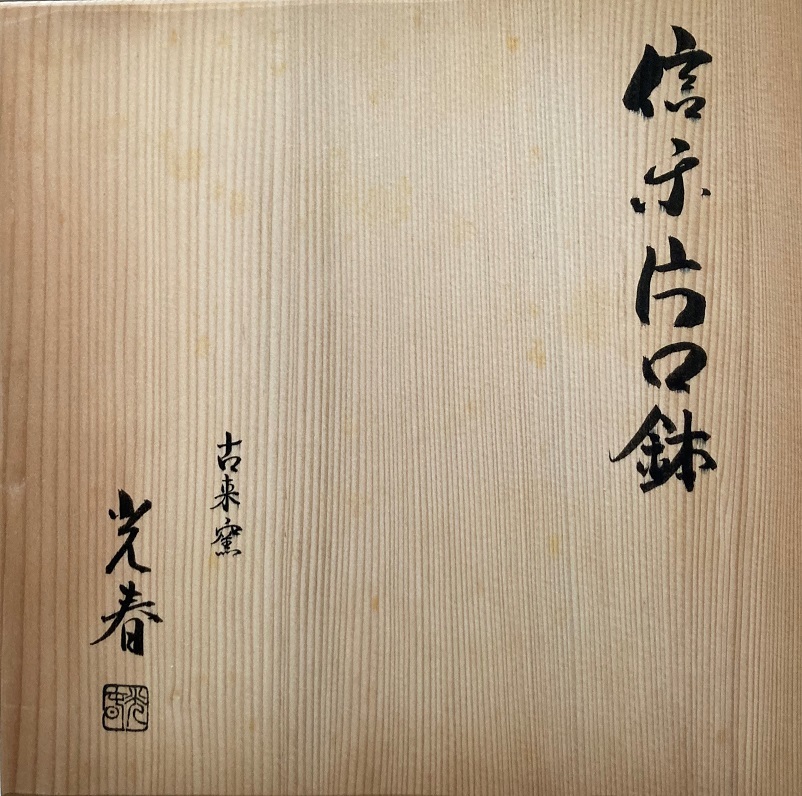 信楽片口鉢
古来窯
光春
光春